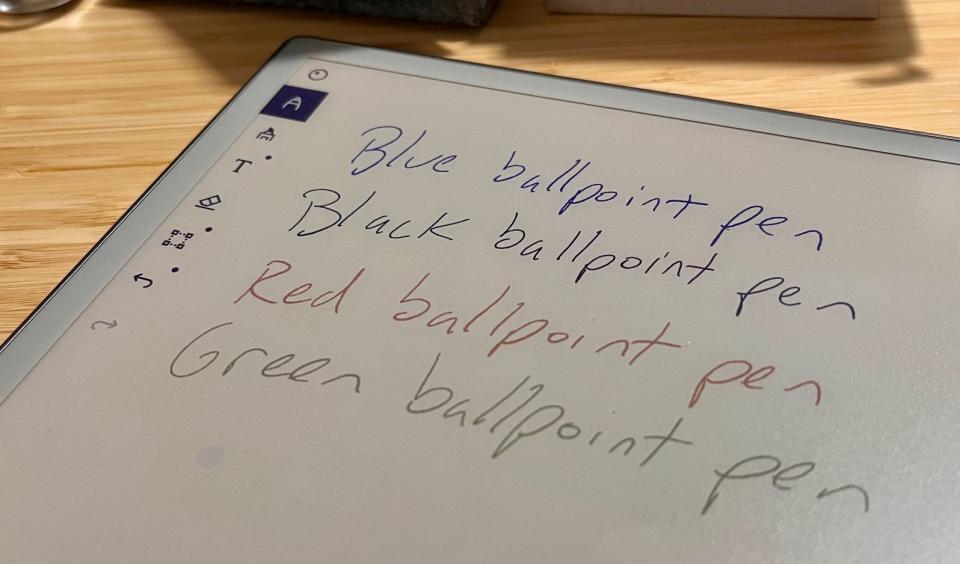 T
Blue ballpoint pen
Black ballpoint pen
Red ballpoint pen
Green ballpoint pen